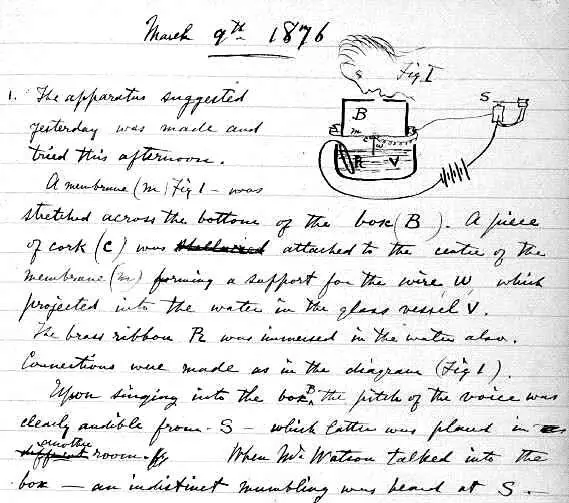 March 9th 1876
Fig I
S
B
m
c
w
R V
1. The apparatus suggested
yesterday was made and
tried this afternoon.
A membrane (m) Fig 1 - was
stretched across the bottom of the box (B). A piece
of cork (c) was attached to the centre of the
membrane (m) forming a support for the wire W, which
projected into the water in the glass vessel V.
The brass ribbon R was immersed in the water also.
Connections were made as in the diagram (Fig 1).
Upon singing into the box B the pitch of the voice was
clearly audible from - S - which latter was placed in
another
different room. When Mr Watson talked into the
box - an indistinct mumbling was heard at S.